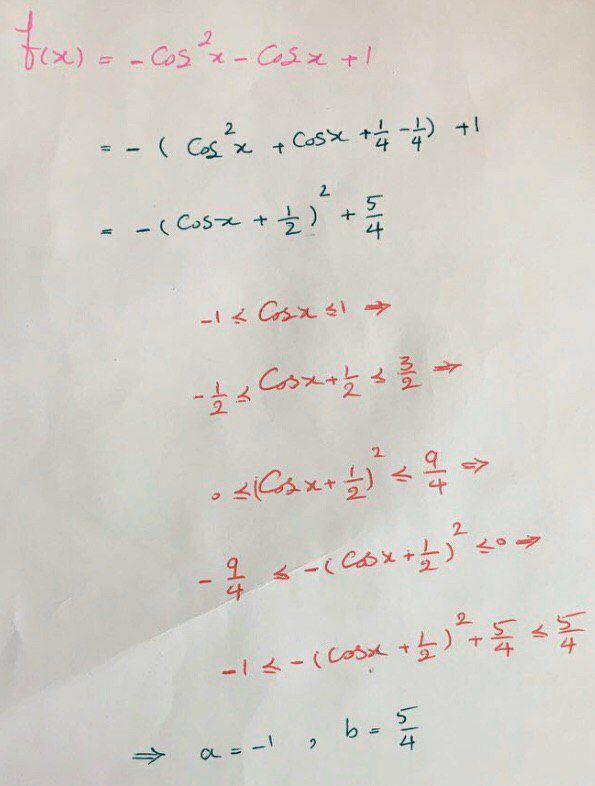 f(x) = -Cos²x - Cosx + 1
= - ( Cos²x + Cosx + 1/4 - 1/4 ) + 1
= - ( Cosx + 1/2 )² + 5/4
-1 ≤ Cosx ≤ 1 ⇒
-1/2 ≤ Cosx + 1/2 ≤ 3/2 ⇒
0 ≤ (Cosx + 1/2)² ≤ 9/4 ⇒
-9/4 ≤ - (Cosx + 1/2)² ≤ 0 ⇒
-1 ≤ - (Cosx + 1/2)² + 5/4 ≤ 5/4
⇒ a = -1 , b = 5/4